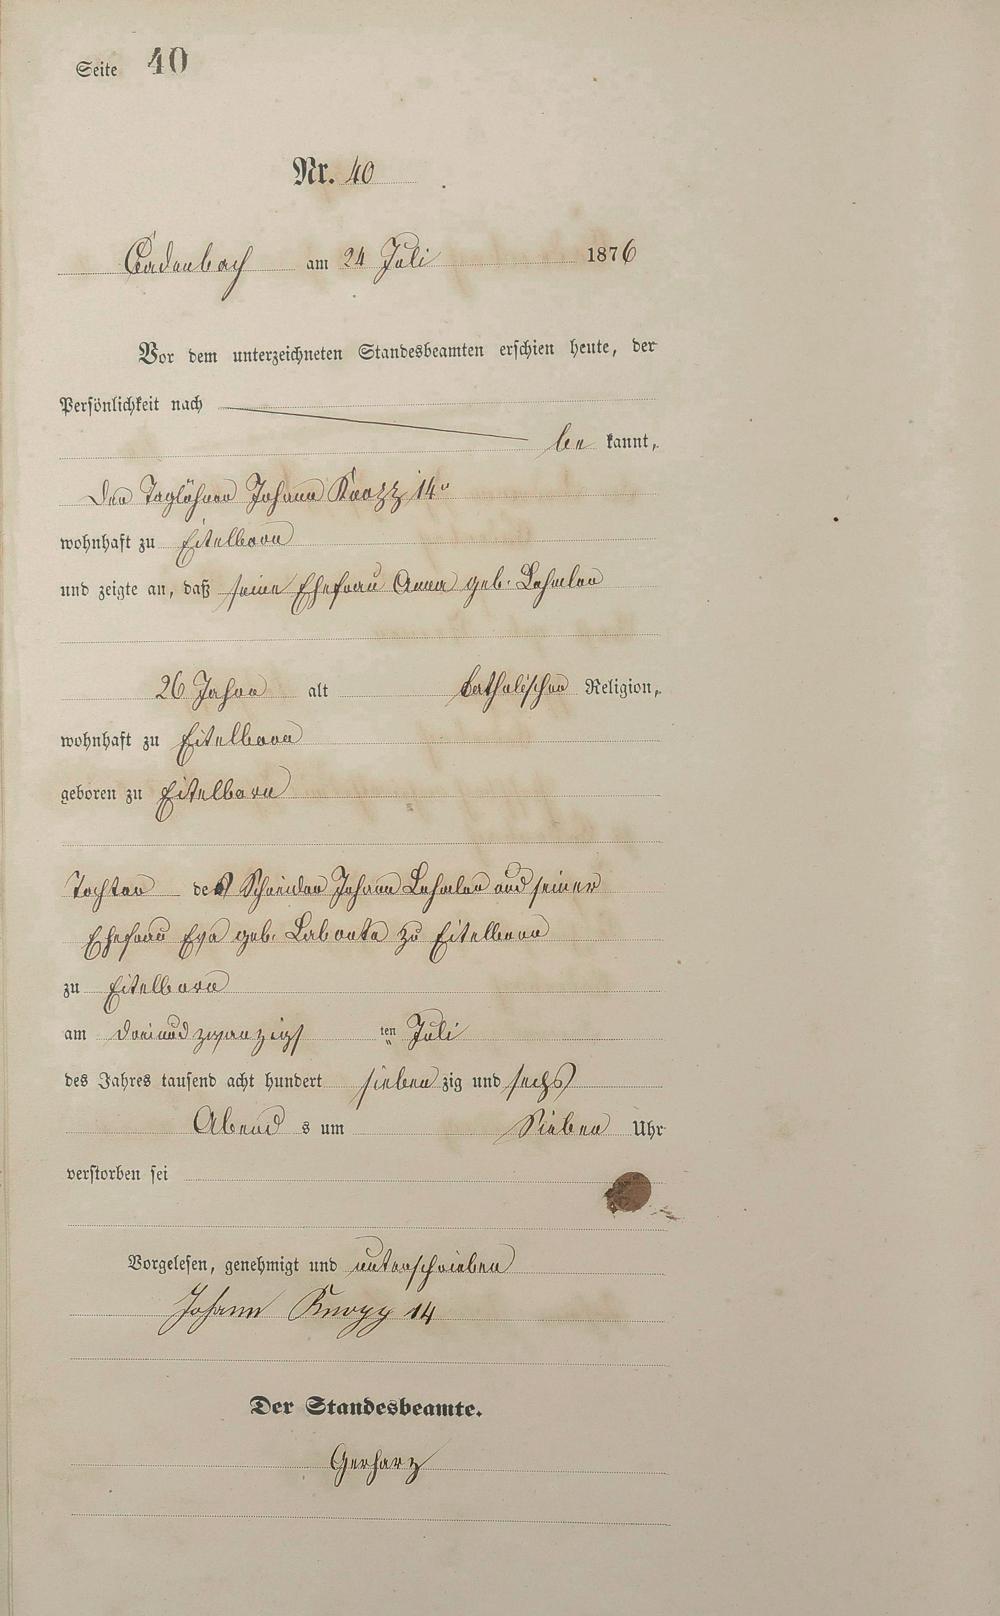 Seite 40
Nr. 40
Cadenbach am 24 Juli 1876
Vor dem unterzeichneten Standesbeamten erschien heute, der
Persönlichkeit nach
be kannt,
der Taglöhner Johann Knopp 14r
wohnhaft zu Eitelborn
und zeigte an, daß seine Ehefrau Anna geb. Lehmler
26 Jahre alt katholischer Religion,
wohnhaft zu Eitelborn
geboren zu Eitelborn
Tochter des Schneider Johann Lehmler und seiner
Ehefrau Eva geb. Labonte zu Eitelborn
zu Eitelborn
am dreiundzwanzigs ten Juli
des Jahres tausend acht hundert sieben zig und sechs
Abend s um Sieben Uhr
verstorben sei
Vorgelesen, genehmigt und unterschrieben
Johann Knopp 14
Der Standesbeamte.
Gerharz